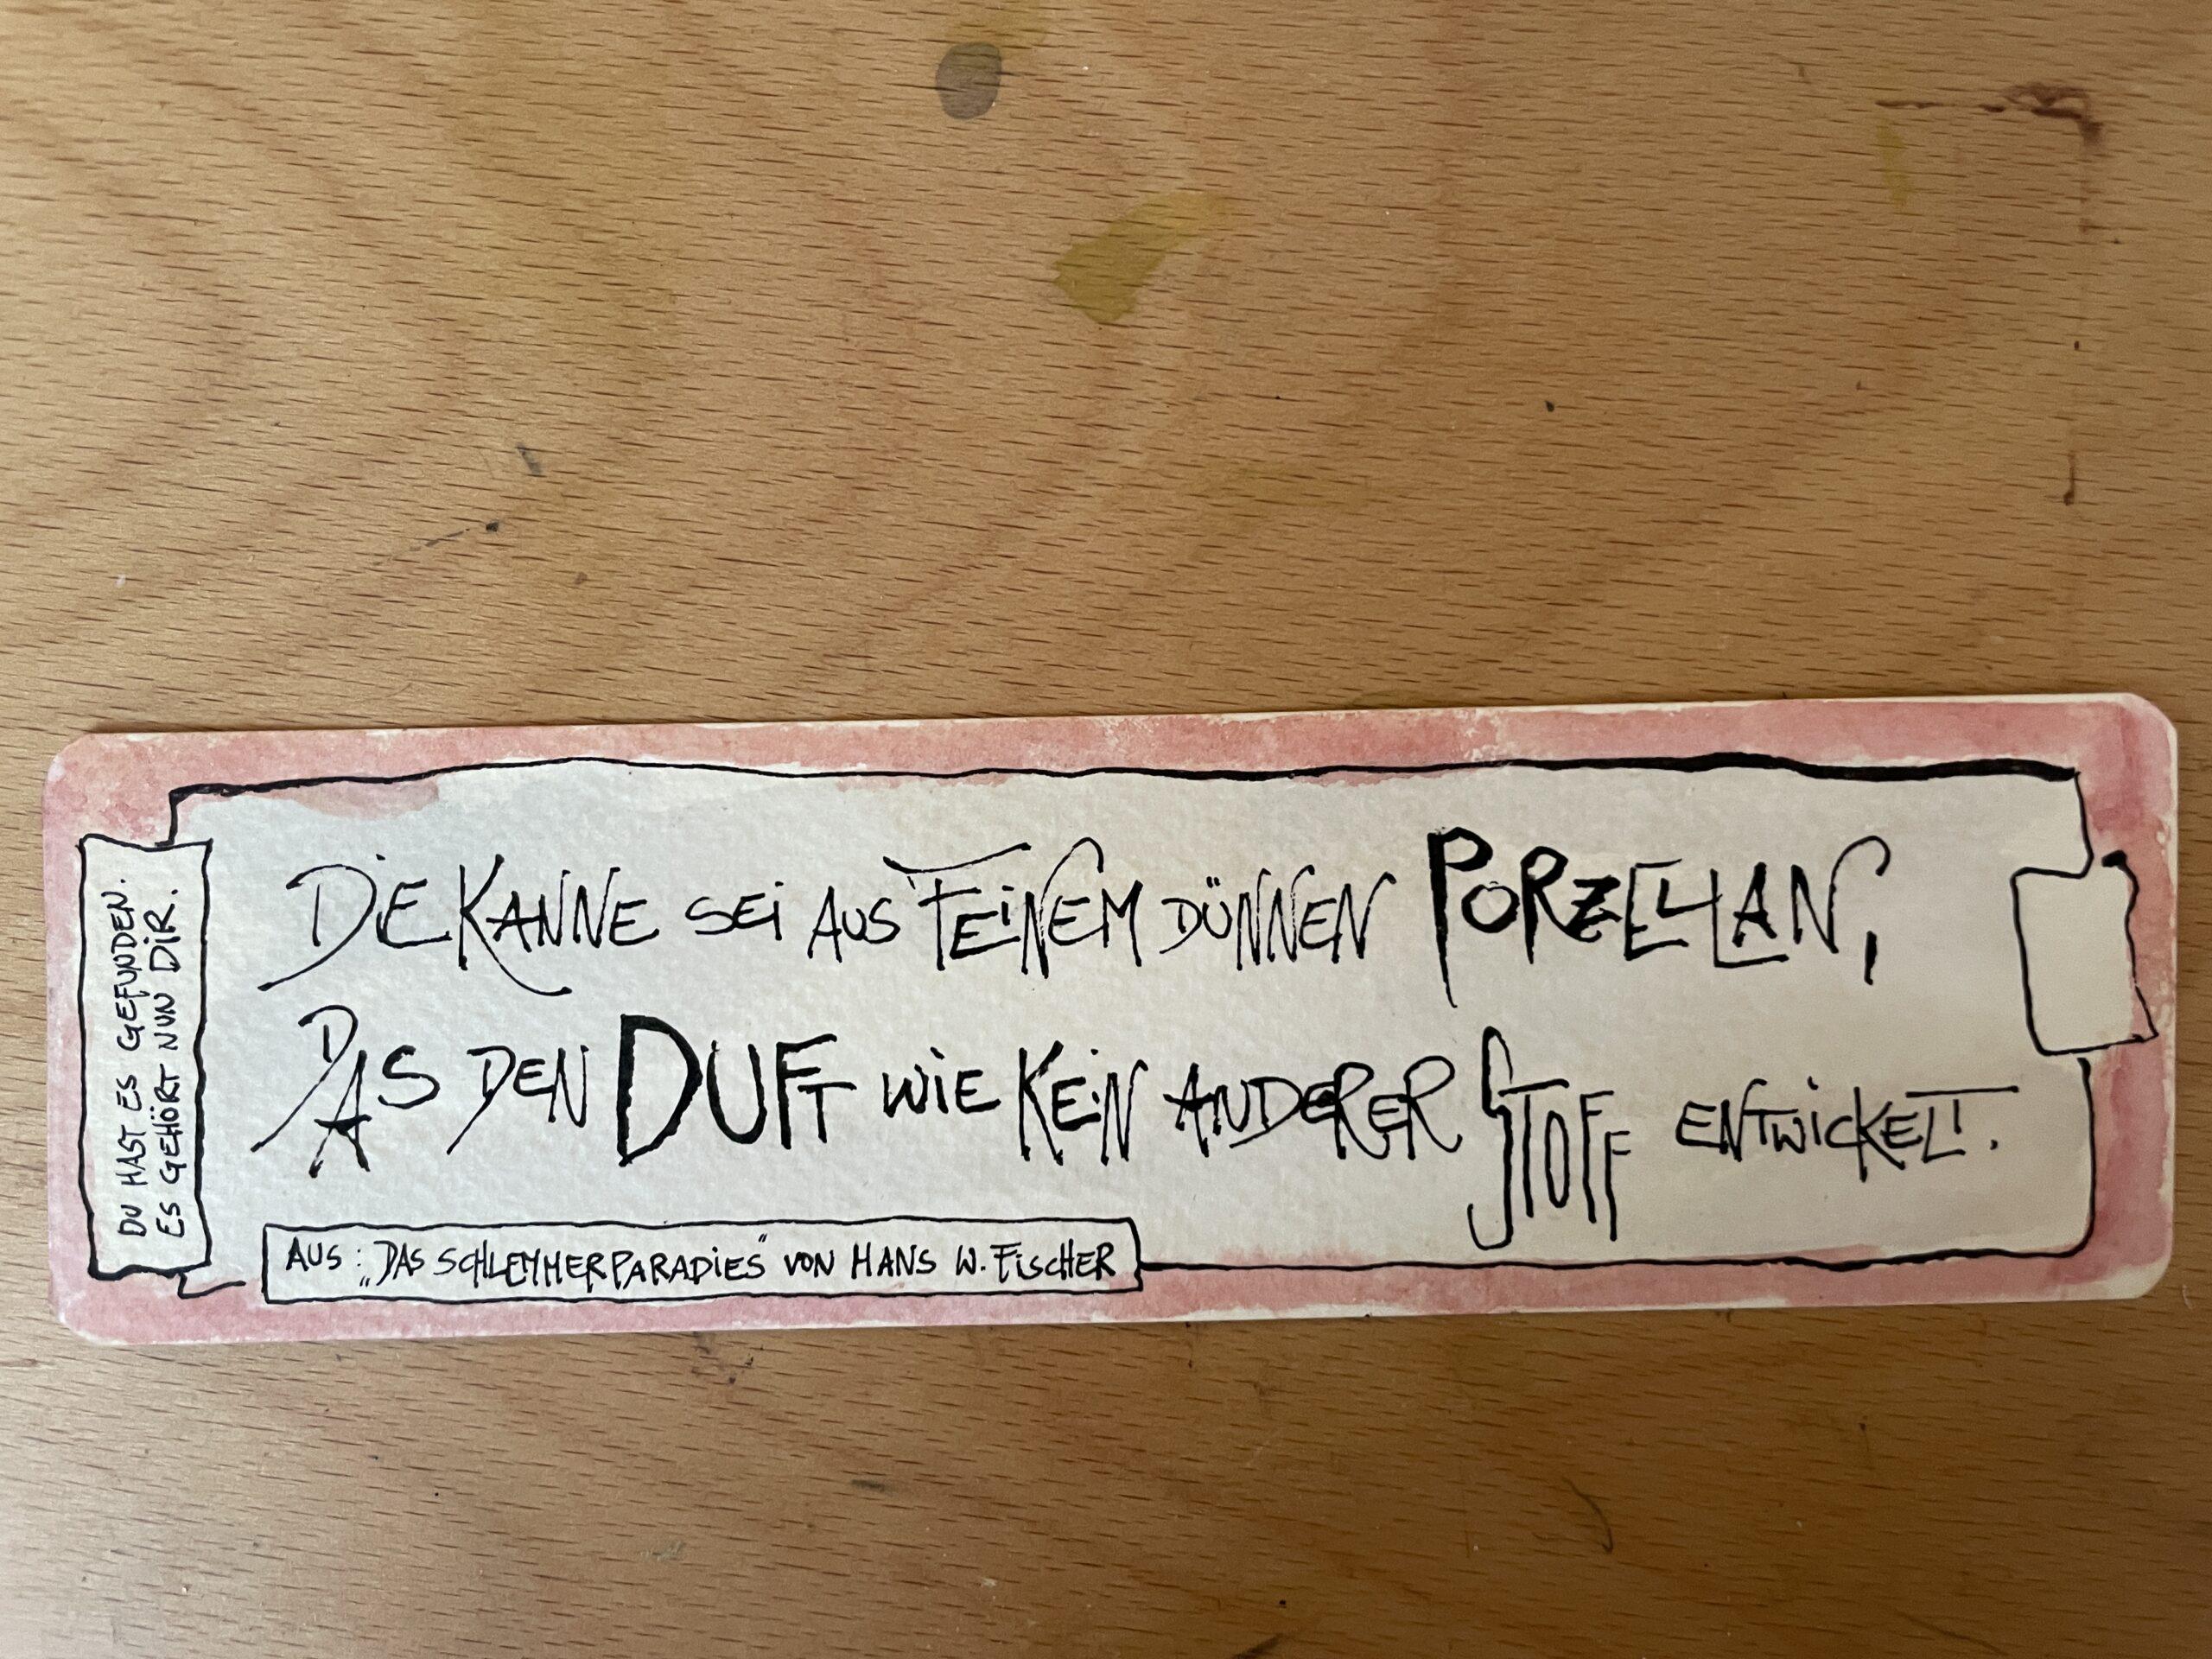 DU HAST ES GEFUNDEN.
ES GEHÖRT NUN DIR.
DIE KANNE SEI AUS FEINEM DÜNNEN PORZELLAN,
DAS DEN DUFT WIE KEIN ANDERER STOFF ENTWICKELT.
AUS: „DAS SCHLEMMERPARADIES" VON HANS W. FISCHER